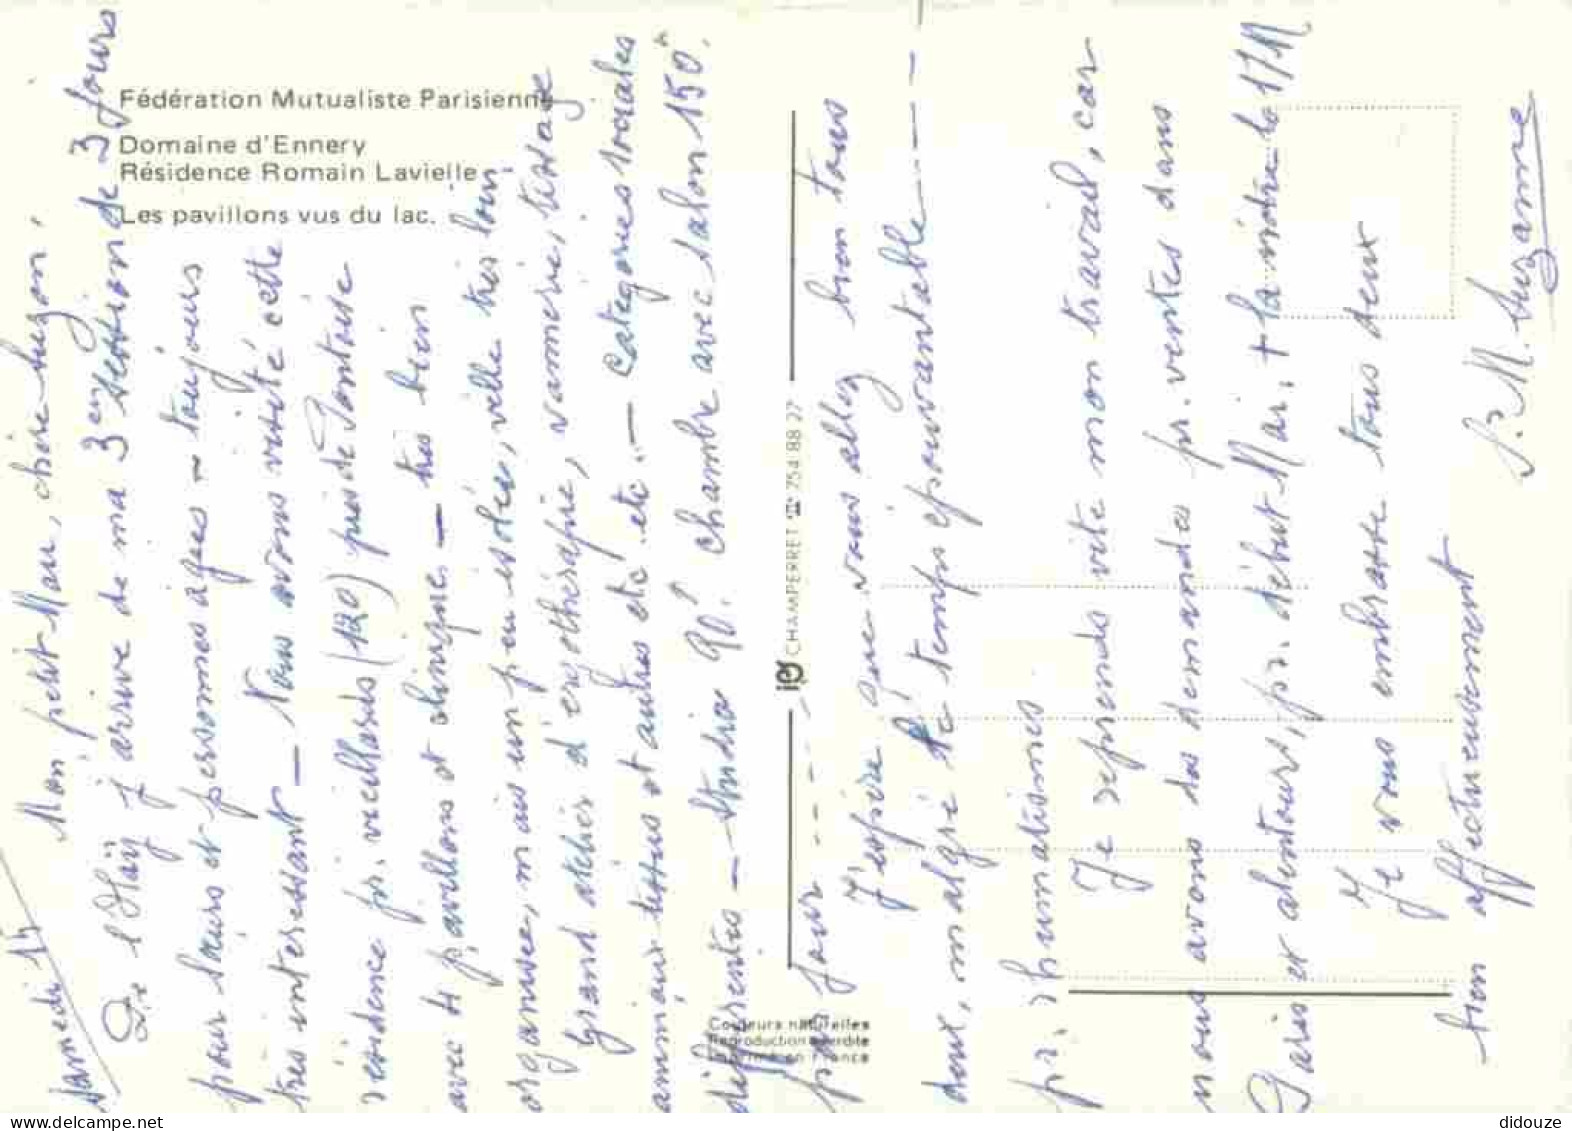 Fédération Mutualiste Parisienne
Domaine d'Ennery
Résidence Romain Lavielle
Les pavillons vus du lac.
Samedi 15
Mon petit Mau, chère Suzon,
De l'Haÿ j'arrive de ma 3e session de 3 jours
pour sœurs et personnes agées - toujours
très intéressant - Nous avons visité cette
résidence pr. vieillards (120) près de Pontoise
avec 4 pavillons et clinique - très bien
organisée, mais un peu isolée, ville très loin
Grand atelier d'ergothérapie, vannerie, tissage
animaux tissus et autres etc. etc. - catégories sociales
différentes - studio 90F. chambre avec salon 150F.
par jour ----
J'espère que vous allez bien tous
deux, malgré ce temps épouvantable ----
pr. rhumatismes
Je reprends vite mon travail, car
nous avons des demandes pr. ventes dans
Paris et alentours, pr. début Mai, + la nôtre le 1/M
Je vous embrasse tous deux
bien affectueusement
S. M. Suzanne
iер CHAMPERRET ☎ 754 88 27
Couleurs naturelles
Reproduction interdite
Imprimé en France
didouze